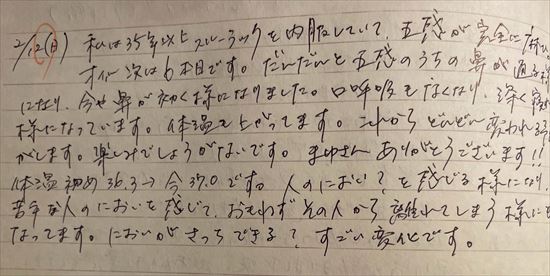 2/12(日) 私は35年以上スルーラックを内服していて、五感が完全に
次は6本目です。だんだんと五感のうちの鼻が通る様
になり、今や鼻が効く様になりました。口呼吸もなくなり、深く
様になっています。体温も上がってます。これからどんどん変われる
がします。楽しみでしょうがないです。まゆさんありがとうございます!!
体温初め36.3→今37.0です。人のにおい?を感じる様になり、
苦手な人のにおいを感じて、おもわずその人から離れてしまう様にも
なってます。においがさっちできる?すごい変化です。